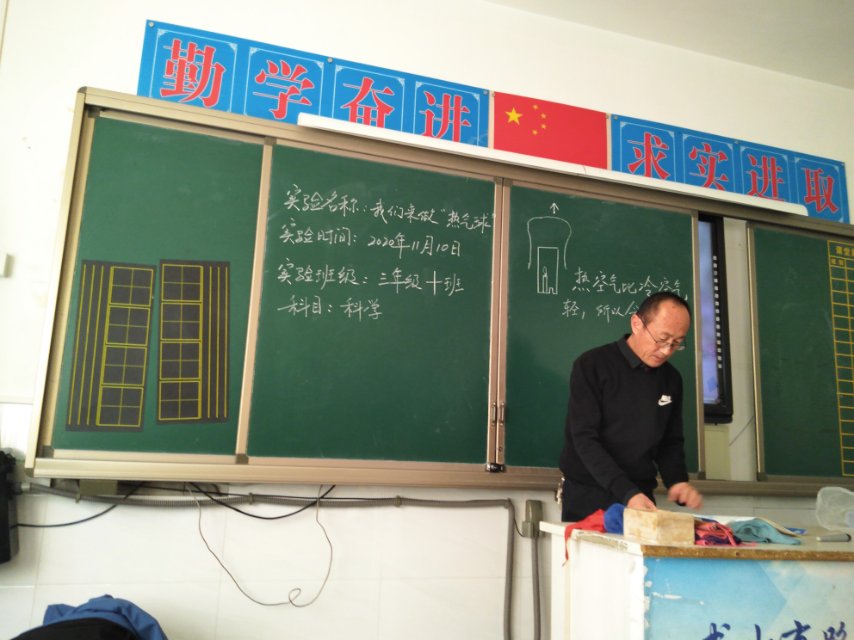 勤学奋进
求实进取
实验名称：我们来做"热气球"
实验时间：2020年11月10日
实验班级：三年级十班
科目：科学
热空气比冷空气
轻，所以